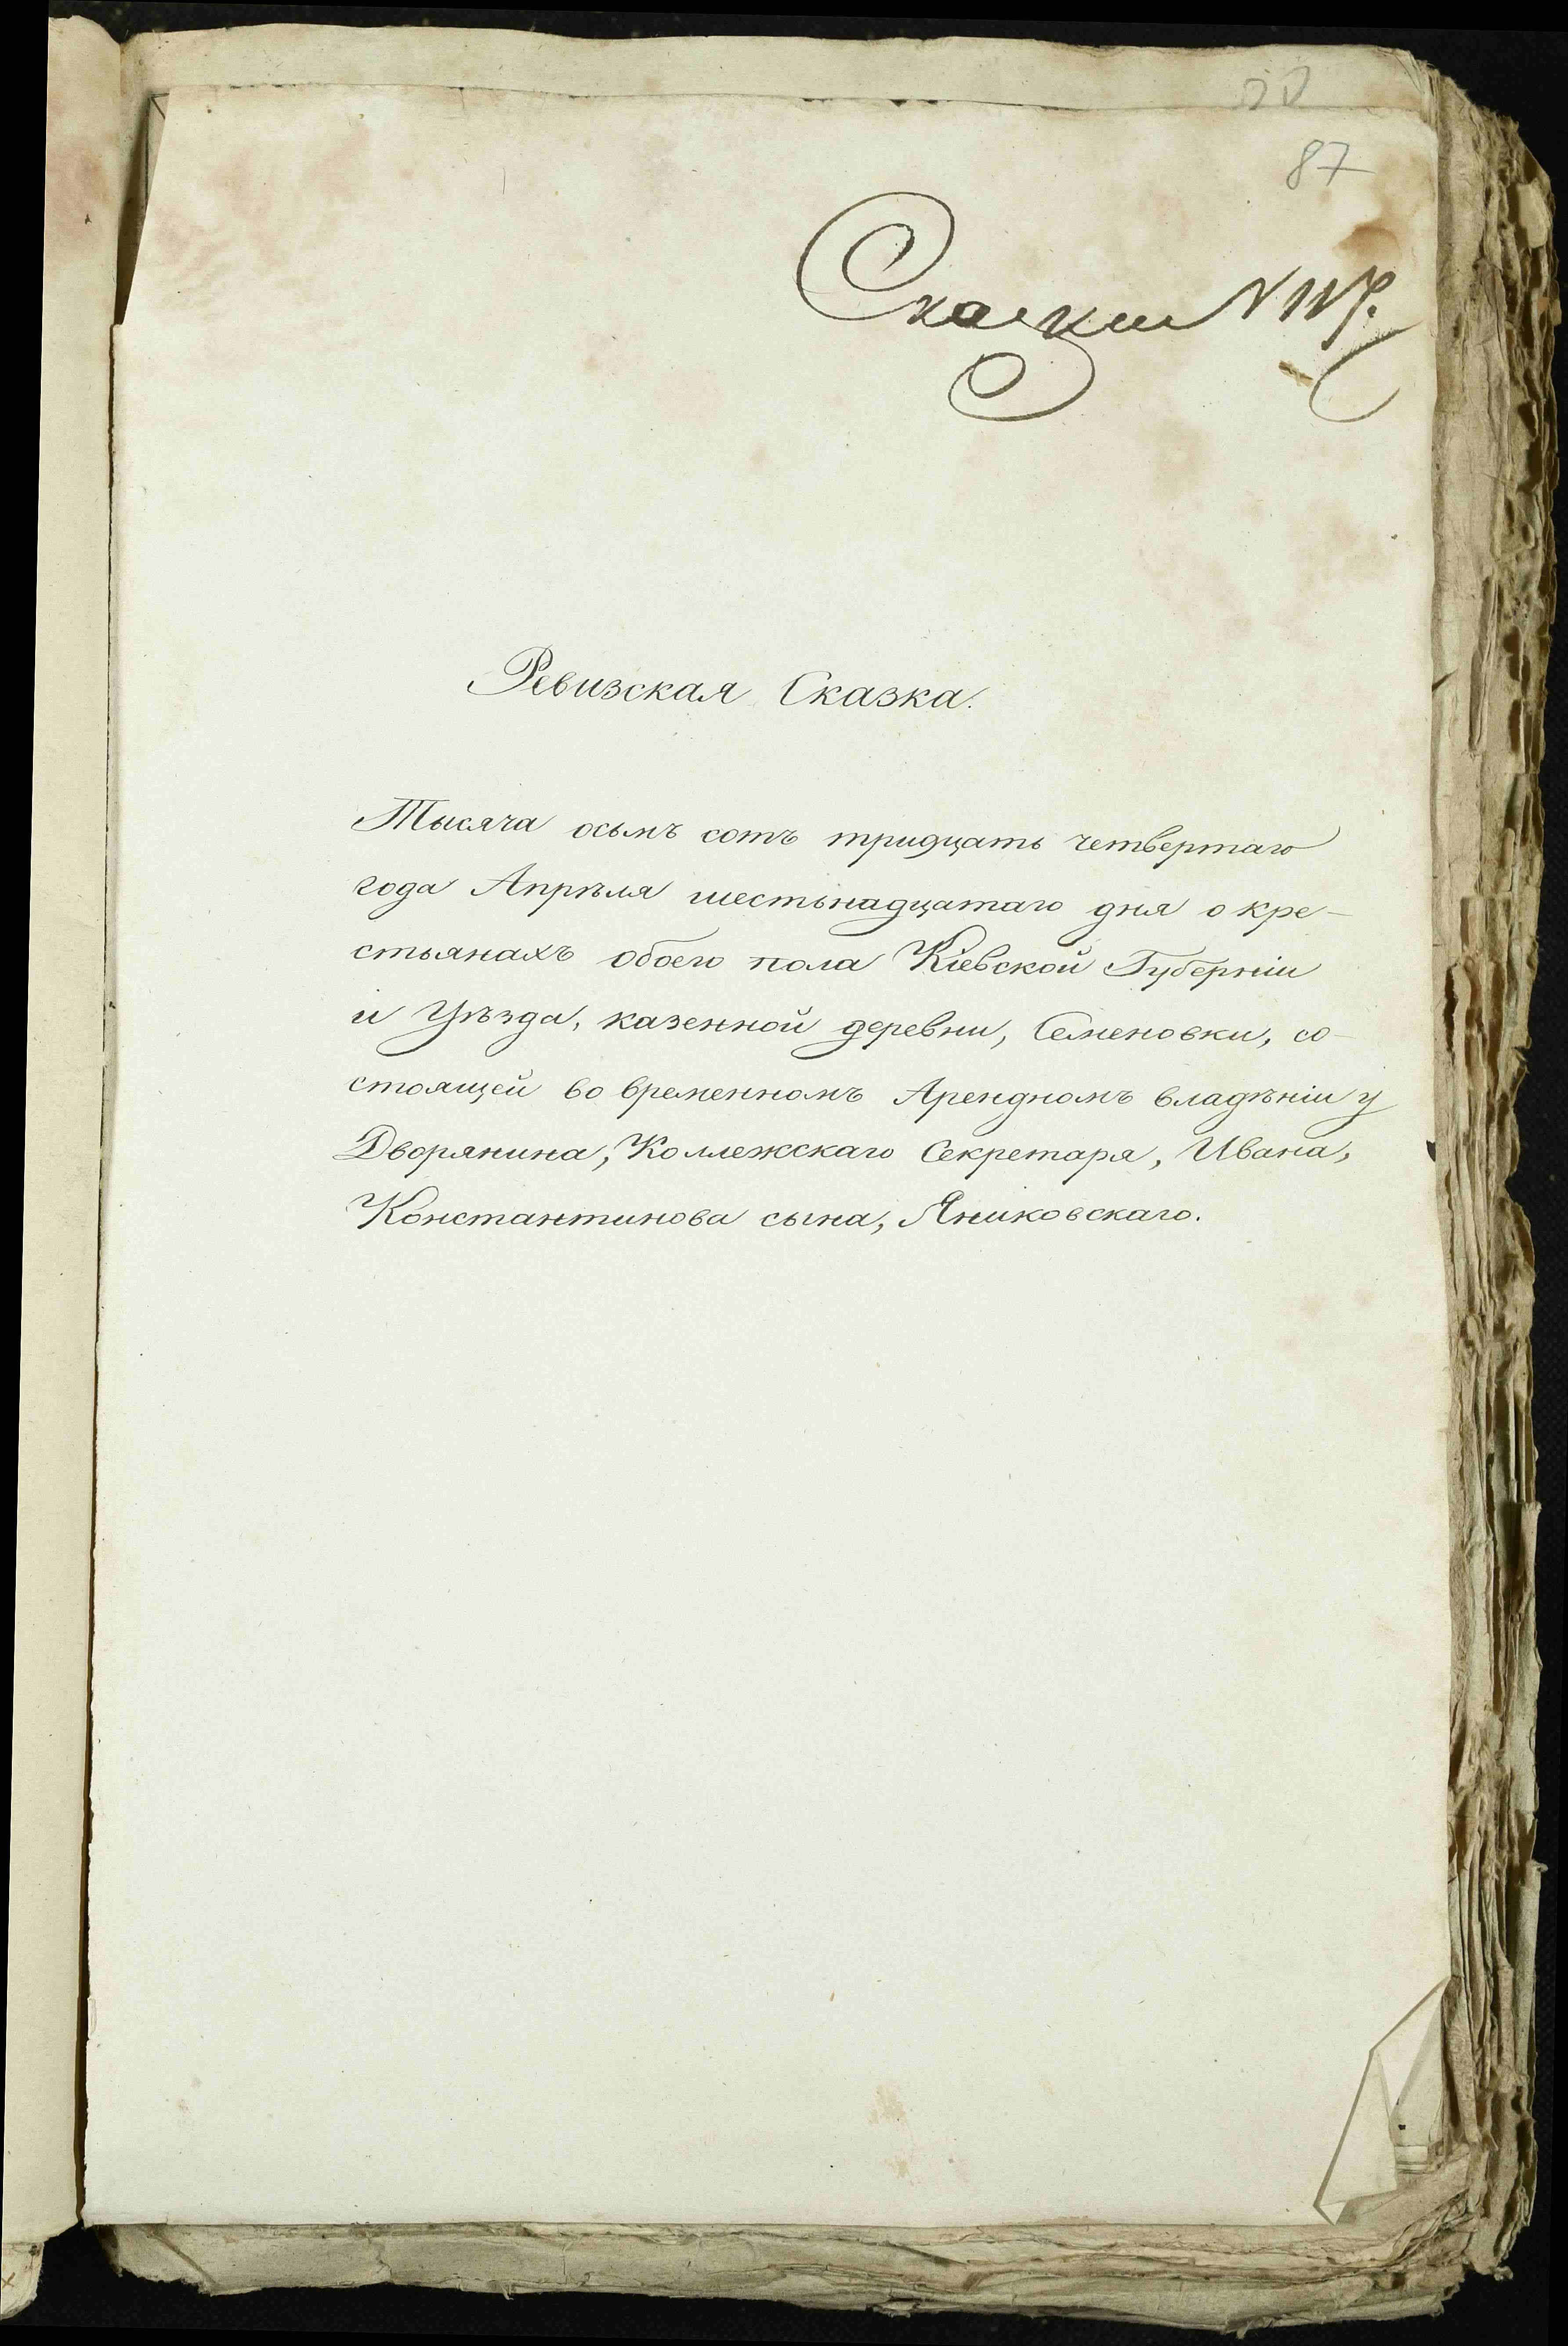 87
Сказки N
Ревизская Сказка.
Тысяча осьмъ сотъ тридцать четвертаго
года Апрѣля шестьнадцатаго дня о кре-
стьянахъ обоего пола Кіевской Губерніи
и Уѣзда, казенной деревни, Семеновки, со-
стоящей во временномъ Арендномъ владѣніи у
Дворянина, Коллежскаго Секретаря, Ивана,
Константинова сына, Яниковскаго.